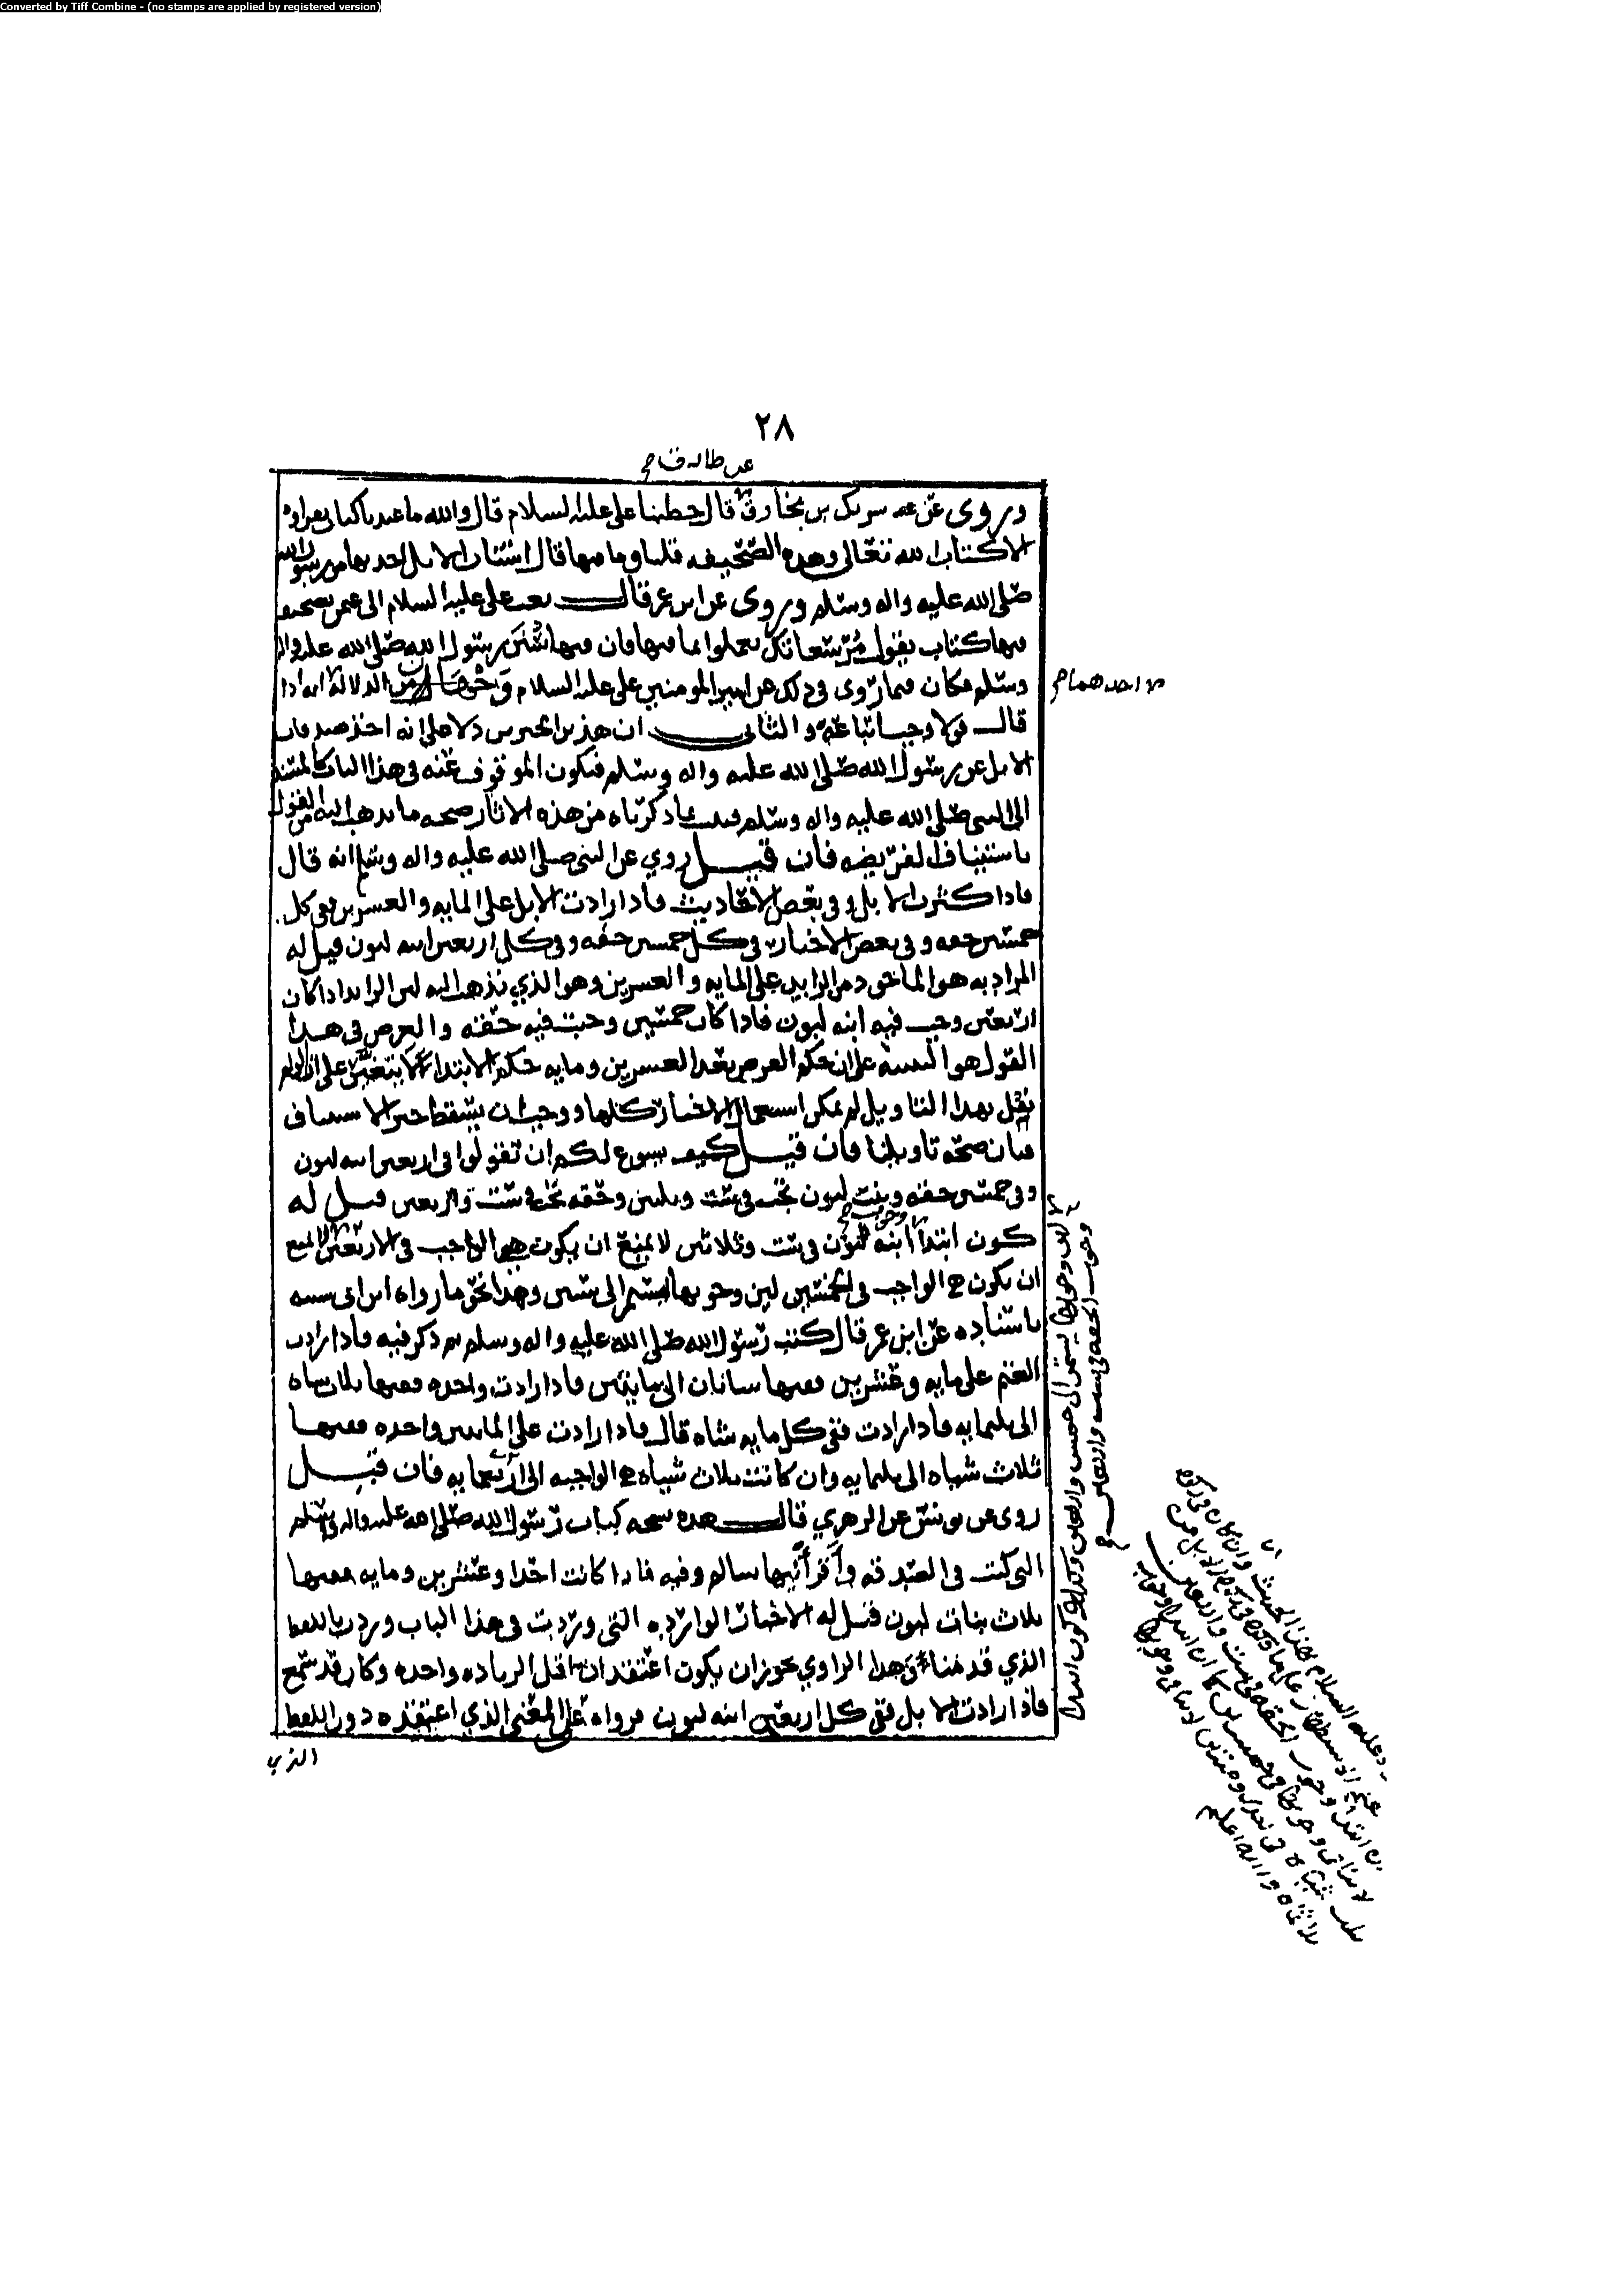 Converted by Tiff Combine - (no stamps are applied by registered version)
٢٨
عن طارق
وروى عن شريك بن مخارق قال خطبنا على عليه السلام قال والله ما عندنا كتاب نقراوه
الا كتاب الله تعالى وهذه الصحيفه قلنا وما فيها قال اسنان الابل اخذتها من رسول الله
صلى الله عليه واله وسلم وروى عن ابن عمر قال بعث على عليه السلام الى عثمن بصحيفه
فيها كتاب يقول مر سعاتك يعملوا بما فيها فان فيها سنن رسول الله صلى الله عليه واله
وسلم فكان فيما روى في ذلك عن امير المومنين على عليه السلام وجهان من الدلالة انه اذا
احدهما
قال قولا وجب اتباعه والثاني ان هذين الخبرين دلا على انه اخذ صدقات
الابل عن رسول الله صلى الله عليه واله وسلم فيكون الموقوف عنه في هذا الباب كالمسند
الى النبي صلى الله عليه واله وسلم فثبت بما ذكرناه من هذه الاثار صحه ما نذهب اليه من القول
باستيناف الفريضه فان قيل روي عن النبي صلى الله عليه واله وسلم انه قال
فاذا كثرت الابل وفي بعض الاحاديث فاذا زادت الابل على المايه والعشرين ففي كل
خمسين حقه وفي بعض الاخبار في كل خمسين حقه وفي كل اربعين ابنه لبون قيل له
المراد به هو الماخوذ من الزايد على المايه والعشرين وهو الذي نذهب اليه لان الزايد اذا كان
اربعين وجب فيه ابنه لبون فاذا كان خمسين وجبت فيه حقه والغرض في هذا
القول هو التنبيه على ان حكم الفرض بعد العشرين ومايه حكم الابتدا لا يتغير على انا لو لم
نقل بهذا التاويل لم يمكن استعمال الاخبار كلها ووجب ان يسقط خبر الاستيناف
فبان صحة تاويلنا فان قيل كيف يسوغ لكم ان تقولوا في اربعين ابنه لبون
وفي خمسين حقه وبنت لبون تجب في ست وثلثين وحقه تجب في ست واربعين قيل له
كون ابتدا وجوب ابنه لبون في ست وثلاثين لا يمنع ان يكون هي الواجب في الاربعين ولا يمنع
ان يكون هي الواجب في الخمسين لان وجوبها يستمر الى ستين وهذا نحو ما رواه ابن ابي شيبه
باسناده عن ابن عمر قال كتب رسول الله صلى الله عليه واله وسلم ثم ذكر فيه فاذا زادت
الغنم على مايه وعشرين ففيها شاتان الى مايتين فاذا زادت واحده ففيها ثلاث شياه
الى ثلثمايه فاذا زادت ففي كل مايه شاه قال فاذا زادت على المايتين واحده ففيها
ثلاث شياه الى ثلثمايه وان كانت ثلاث شياه هي الواجبه الى اربعمايه فان قيل
روى عن يونس عن الزهري قال هذه نسخه كتاب رسول الله صلى الله عليه واله وسلم
التي كتب في الصدقه واقرأنيها سالم وفيه فاذا كانت احدا وعشرين ومايه ففيها
ثلاث بنات لبون قيل له الاخبار الوارده التي وردت في هذا الباب وردت باللفظ
الذي قدمناه وهذا الراوي يجوز ان يكون اعتقد ان اقل الزياده واحده وكان قد سمع
فاذا زادت الابل ففي كل اربعين ابنه لبون فرواه على المعنى الذي اعتقده دون اللفظ
الذي
يستمر الى خمس واربعين وكذلك كون ابتدا
وجوب الحقه في ست واربعين
والله اعلم